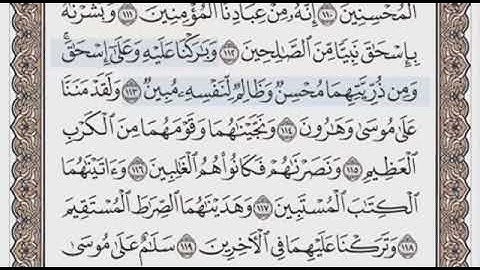 ٱلْمُحْسِنِينَ ١١٠ إِنَّهُۥ مِنْ عِبَادِنَا ٱلْمُؤْمِنِينَ ١١١ وَبَشَّرْنَٰهُ
بِإِسْحَٰقَ نَبِيًّا مِّنَ ٱلصَّٰلِحِينَ ١١٢ وَبَٰرَكْنَا عَلَيْهِ وَعَلَىٰٓ إِسْحَٰقَۚ
وَمِن ذُرِّيَّتِهِمَا مُحْسِنٌ وَظَالِمٌ لِّنَفْسِهِۦ مُبِينٌ ١١٣ وَلَقَدْ مَنَنَّا
عَلَىٰ مُوسَىٰ وَهَٰرُونَ ١١٤ وَنَجَّيْنَٰهُمَا وَقَوْمَهُمَا مِنَ ٱلْكَرْبِ
ٱلْعَظِيمِ ١١٥ وَنَصَرْنَٰهُمْ فَكَانُوا۟ هُمُ ٱلْغَٰلِبِينَ ١١٦ وَءَاتَيْنَٰهُمَا
ٱلْكِتَٰبَ ٱلْمُسْتَبِينَ ١١٧ وَهَدَيْنَٰهُمَا ٱلصِّرَٰطَ ٱلْمُسْتَقِيمَ
١١٨ وَتَرَكْنَا عَلَيْهِمَا فِى ٱلْءَاخِرِينَ ١١٩ سَلَٰمٌ عَلَىٰ مُوسَىٰ